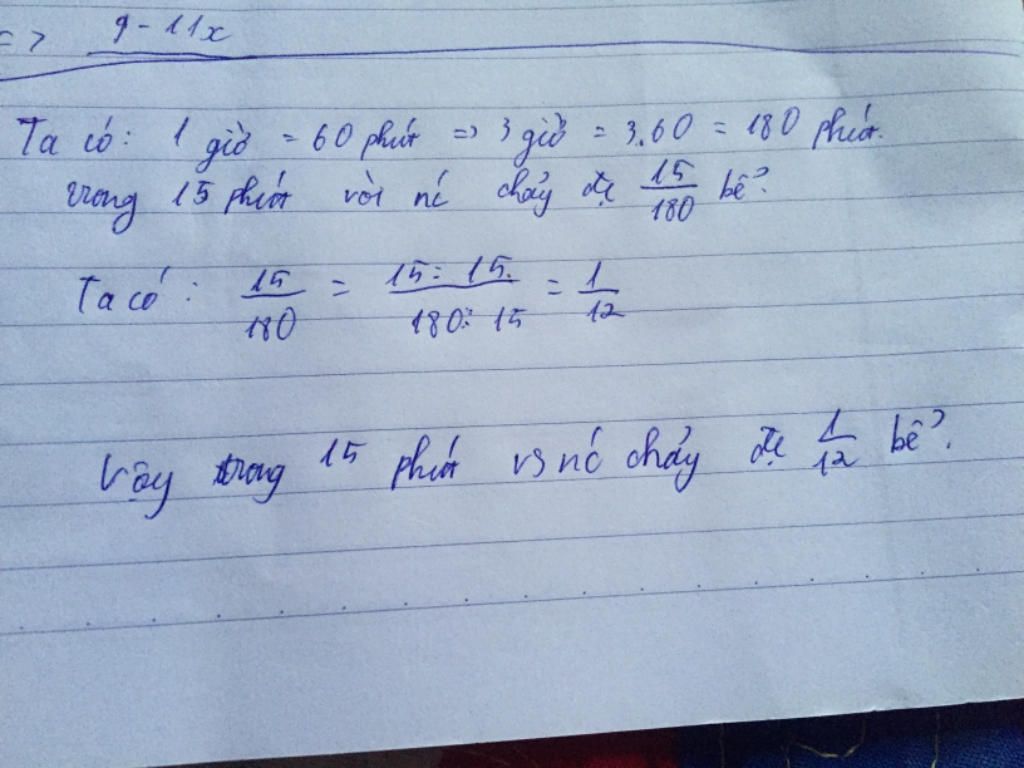 => 9 - 11x
Ta có: 1 giờ = 60 phút => 3 giờ = 3.60 = 180 phút.
trong 15 phút vòi nc chảy đc 15/180 bể.
Ta có: 15/180 = 15: 15/180: 15 = 1/12
Vậy trong 15 phút vs nc chảy đc 1/12 bể.